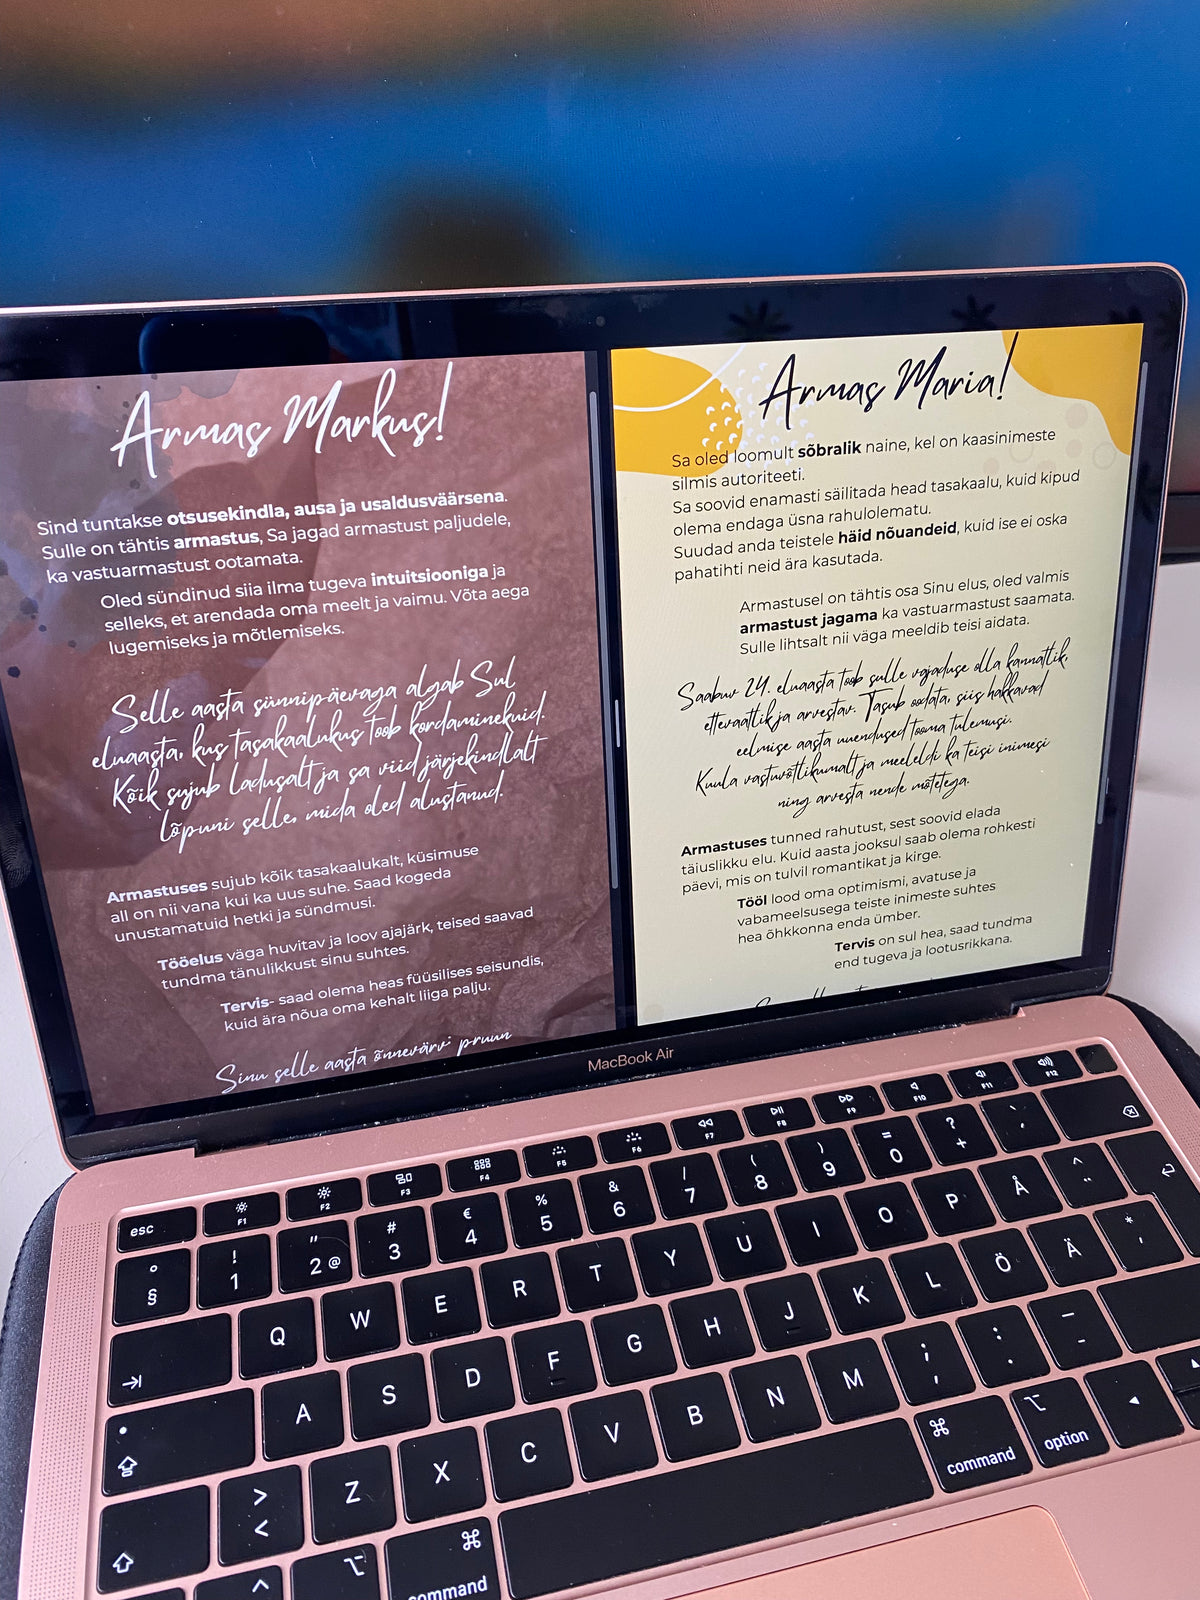 Armas Markus!
Sind tuntakse otsusekindla, ausa ja usaldusväärsena.
Sulle on tähtis armastus, Sa jagad armastust paljudele,
ka vastuarmastust ootamata.
Oled sündinud siia ilma tugeva intuitsiooniga ja
selleks, et arendada oma meelt ja vaimu. Võta aega
lugemiseks ja mõtlemiseks.
Selle aasta sünnipäevaga algab Sul
eluaasta, kus tasakaalukus toob kordaminekuid.
Kõik sujub ladusalt ja sa viid järjekindlalt
lõpuni selle, mida oled alustanud.
Armastuses sujub kõik tasakaalukalt, küsimuse
all on nii vana kui ka uus suhe. Saad kogeda
unustamatuid hetki ja sündmusi.
Tööelus väga huvitav ja loov ajajärk, teised saavad
tundma tänulikkust sinu suhtes.
Tervis- saad olema heas füüsilises seisundis,
kuid ära nõua oma kehalt liiga palju.
Sinu selle aasta õnnevärv: pruun
Armas Maria!
Sa oled loomult sõbralik naine, kel on kaasinimeste
silmis autoriteeti.
Sa soovid enamasti säilitada head tasakaalu, kuid kipud
olema endaga üsna rahulolematu.
Suudad anda teistele häid nõuandeid, kuid ise ei oska
pahatihti neid ära kasutada.
Armastusel on tähtis osa Sinu elus, oled valmis
armastust jagama ka vastuarmastust saamata.
Sulle lihtsalt nii väga meeldib teisi aidata.
Saabuv 24. eluaasta toob sulle vajaduse olla kannatlik,
ettevaatlik ja arvestav. Tasub oodata, siis hakkavad
eelmise aasta uuendused tooma tulemusi.
Kuula vastuvõtlikumalt ja meeleldi ka teisi inimesi
ning arvesta nende mõtetega.
Armastuses tunned rahutust, sest soovid elada
täiuslikku elu. Kuid aasta jooksul saab olema rohkesti
päevi, mis on tulvil romantikat ja kirge.
Tööl lood oma optimismi, avatuse ja
vabameelsusega teiste inimeste suhtes
hea õhkkonna enda ümber.
Tervis on sul hea, saad tundma
end tugeva ja lootusrikkana.
MacBook Air
esc F1 F2 F3 F4 F5 F6 F7 F8 F9 F10 F11 F12
° ! " # € % & / ( ) = ? `
§ 1 2 @ 3 4 5 6 7 8 9 0 + ´
Q W E R T Y U I O P Å ^ ¨
A S D F G H J K L Ö Ä * '
> < Z X C V B N M ; , : . _ -
⌘ command ⌘ command ⌥ option